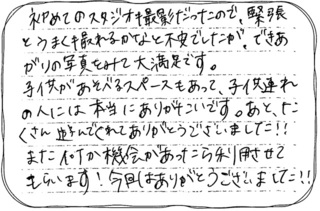 初めてのスタジオ撮影だったので、緊張
とうまく撮れるかなと不安でしたが、できあ
がりの写真をみて大満足です。
子供があそべるスペースもあって、子供連れ
の人には本当にありがたいです。あと、た
くさん遊んでくれてありがとうございました!!
また何か機会があったら利用させて
もらいます!今回はありがとうございました!!